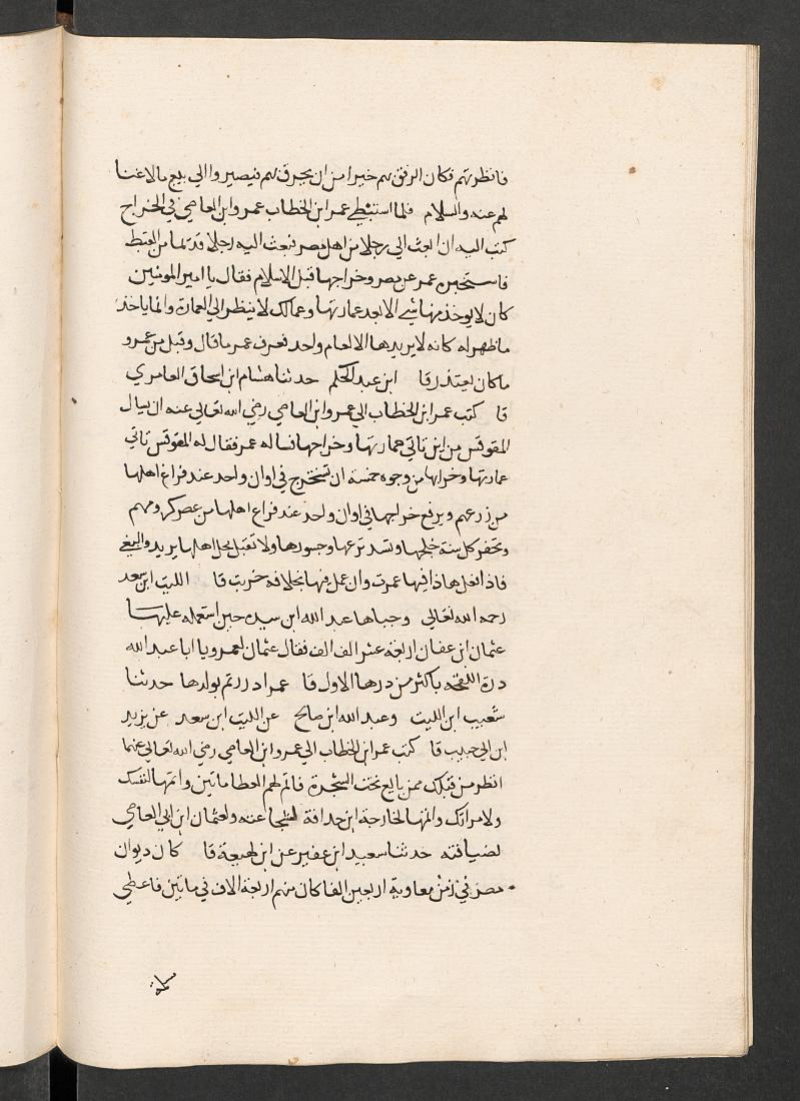 فانظرتهم فكان الرفق بهم خيرا من ان يخرق بهم فيصيروا الي بيع مالا غنا
لهم عنه والسلام فلما استبطي عمر ابن الخطاب عمرو ابن العاصي في الخراج
كتب اليه ان ابعث الي رجلا من اهل مصر فبعث اليه رجلا قديما من القبط
فاستخبره عمر عن مصر وخراجها قبل الاسلام فقال يا امير المومنين
كان لا يوخذ منها شي الا بعد عمارتها وعاملك لا ينظر الي العمارة وانما ياخذ
ما ظهر له كانه لا يريدها الا لعام واحد فعرف عمر ما قال وقبل من عمرو
ما كان يعتذر قا ابن عبد الحكم حدثنا هشام ابن اسحاق العامري
قا كتب عمر ابن الخطاب الي عمرو ابن العاصي رضي الله تعالي عنه ان يسال
المقوقس من اين تاتي عمارتها وخرابها فساله عمر فقال له المقوقس تاتي
عمارتها وخرابها من وجوه خمسة ان تستخرج في اوان واحد عند فراغ اهلها
من زرعهم ويرفع خراجها في اوان واحد عند فراغ اهلها من عصر كرومهم
وتحفر كل سنة خلجها وتسد ترعها وجسورها ولا تقبل محل اهلها يريد والبغي
فاذا فعل هاذا فيها عمرت وان عمل فيها بخلافه خربت قا الليث ابن سعد
رحمه الله تعالي وجباها عبد الله ابن سيده حين استعمله عليها
عثمان ابن عفان اربعة عشر الف الف فقال عثمان لعمرو يا ابا عبد الله
درة اللقحه باكثر من درها الاول قا عمر اد ررتم بولدها حدثنا
شعيب ابن الليث وعبد الله ابن صالح عن الليث ابن سعد عن يزيد
ابن ابي حبيب قا كتب عمر ابن الخطاب الي عمرو ابن العاصي رضي الله تعالي عنهما
انظر من قبلك ممن بايع تحت الشجرة فاتم لهم العطا ماتين واتمها لنفسك
ولامراتك واتمها لخارجة ابن حدافة لشجاعته ولعثمان ابن ابي العاصي
لضيافته حدثنا سعيد ابن عفير عن ابن لهيعة قا كان ديوان
مصر في زمن معاوية اربعين الفا كان منهم اربعة الاف في ماتين فاعطي